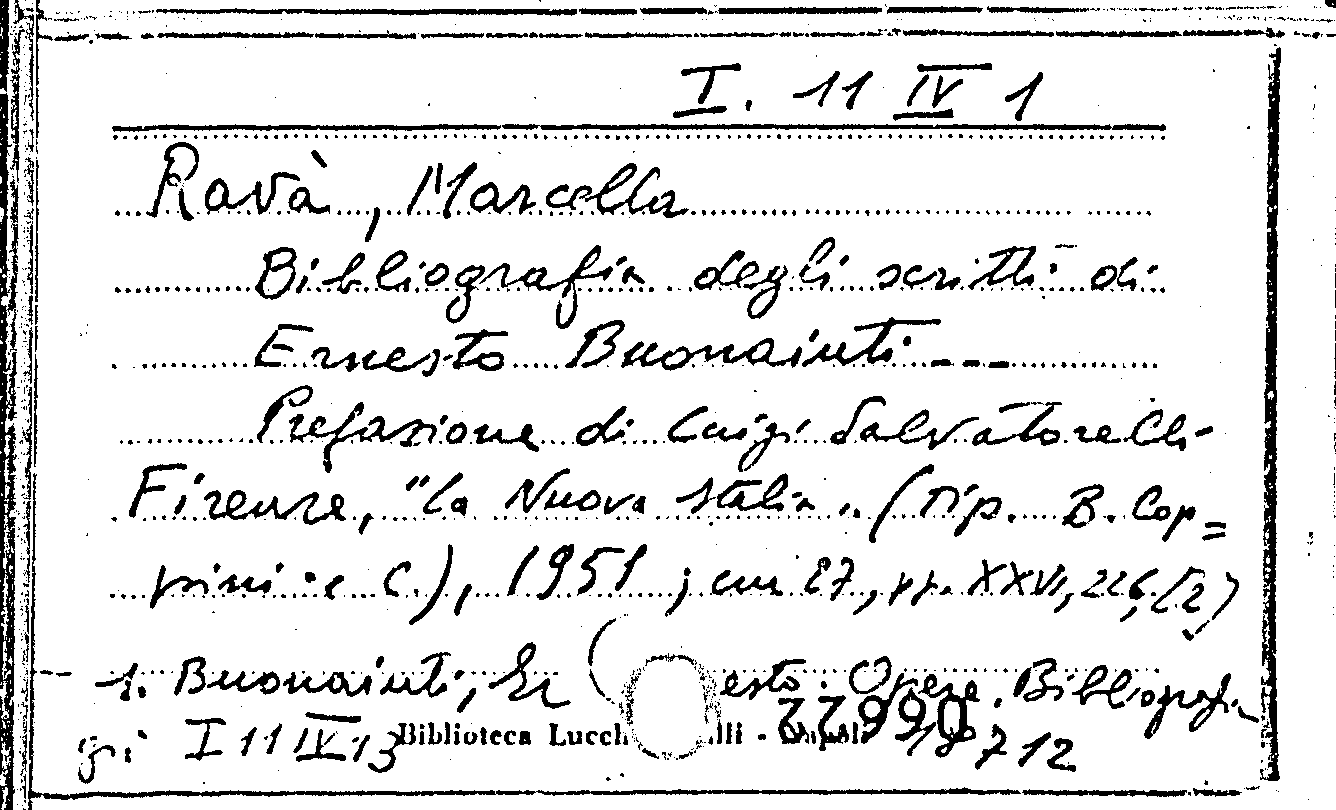 I. 11 IV 1
Ravà, Marcella
Bibliografia degli scritti di
Ernesto Buonaiuti ---
Prefazione di Luigi Salvatorelli
Firenze, "La Nuova Italia„ (Tip. B. Cop=
pini e C.), 1951; cm 27, pp. XXVI, 226, (2)
1. Buonaiuti, Ernesto. Opere. Bibliografia
già I 11 IV 13 Biblioteca Lucch lli - 22990 18712